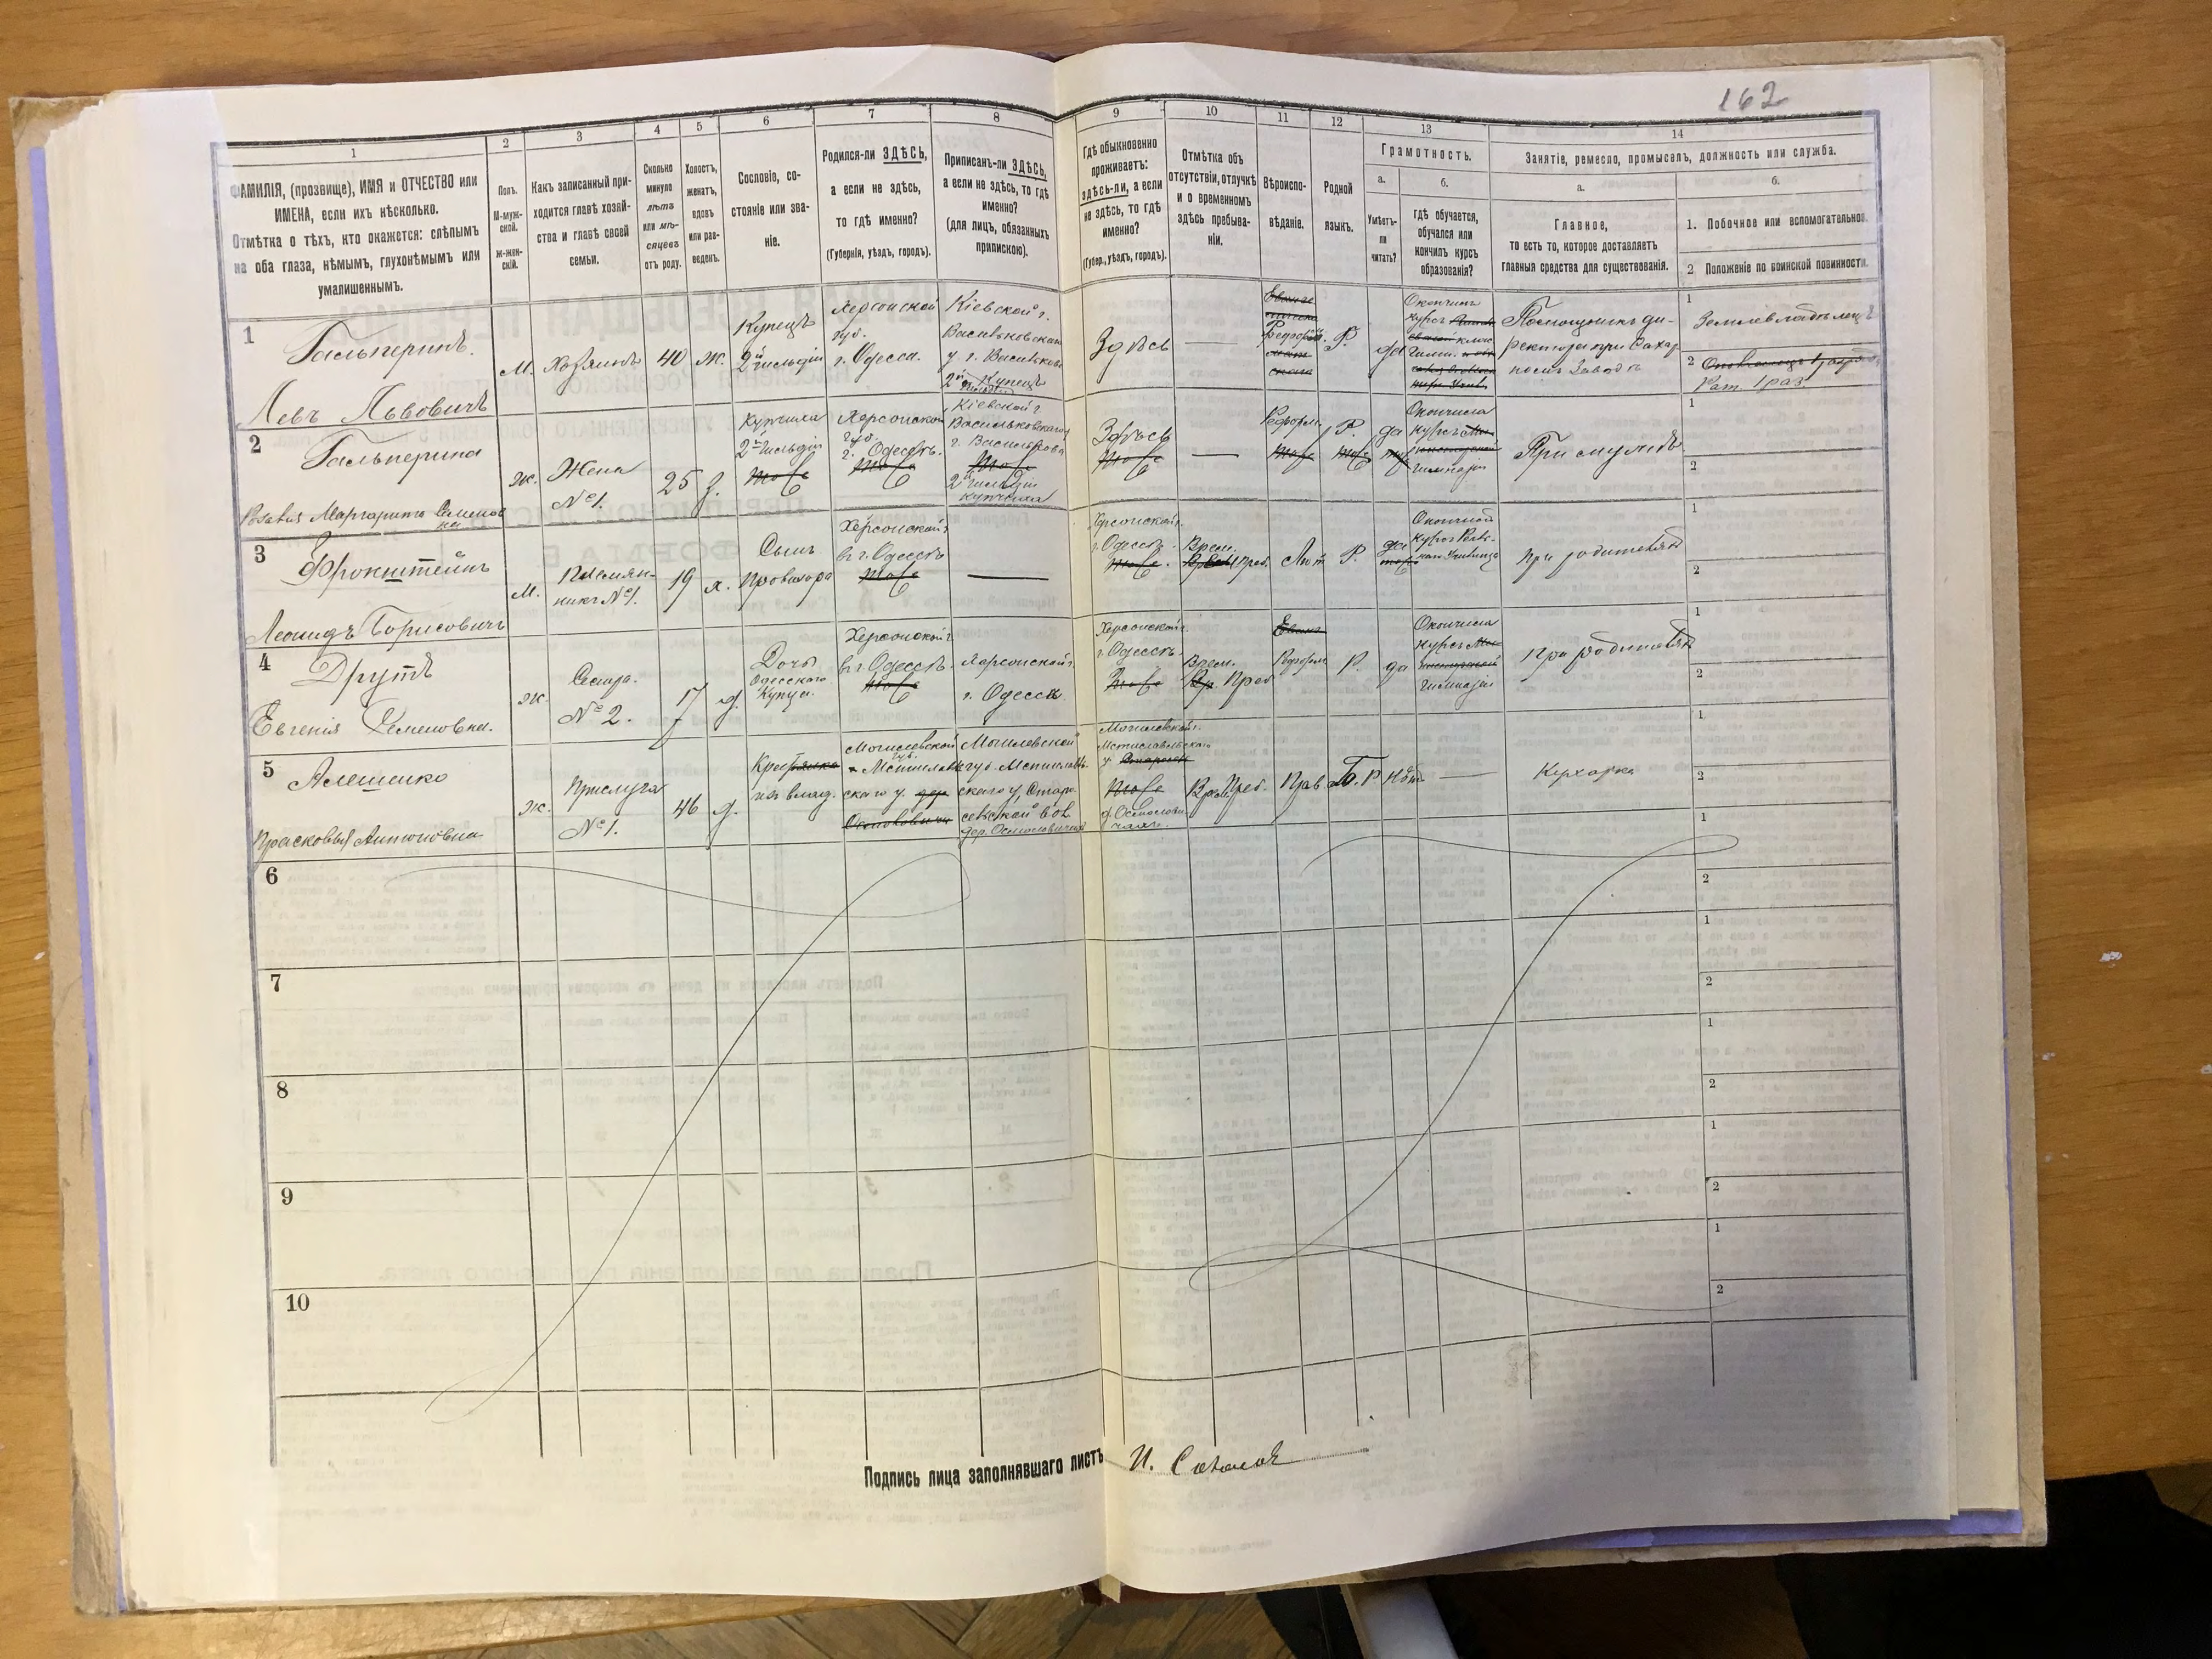 162
1
ФАМИЛІЯ, (прозвище), ИМЯ и ОТЧЕСТВО или
ИМЕНА, если ихъ нѣсколько.
Отмѣтка о тѣхъ, кто окажется: слѣпымъ
на оба глаза, нѣмымъ, глухонѣмымъ или
умалишеннымъ.
2
Полъ.
М-муж-
ской.
ж-жен-
скій.
3
Какъ записанный при-
ходится главѣ хозяй-
ства и главѣ своей
семьи.
4
Сколько
минуло
лѣтъ
или мѣ-
сяцевъ
отъ роду.
5
Холостъ,
женатъ,
вдовъ
или раз-
веденъ.
6
Сословіе, со-
стояніе или зва-
ніе.
7
Родился-ли ЗДѢСЬ,
а если не здѣсь,
то гдѣ именно?
(Губернія, уѣздъ, городъ).
8
Приписанъ-ли ЗДѢСЬ,
а если не здѣсь, то гдѣ
именно?
(для лицъ, обязанныхъ
припискою).
9
Гдѣ обыкновенно
проживаетъ:
здѣсь-ли, а если
не здѣсь, то гдѣ
именно?
(Губер., уѣздъ, городъ).
10
Отмѣтка объ
отсутствіи, отлучкѣ
и о временномъ
здѣсь пребыва-
ніи.
11
Вѣроиспо-
вѣданіе.
12
Родной
языкъ.
13
Грамотность.
а.
Умѣетъ-
ли
читать?
б.
гдѣ обучается,
обучался или
кончилъ курсъ
образованія?
14
Занятіе, ремесло, промыселъ, должность или служба.
а.
Главное,
то есть то, которое доставляетъ
главныя средства для существованія.
б.
1. Побочное или вспомогательное.
2 Положеніе по воинской повинности.
1
Гальперинъ.
Левъ Львовичъ
М.
Хозяинъ
40
Ж.
Купецъ
2й гильдіи
Херсонской
губ.
г. Одесса.
Кіевской г.
Васильковскаго
у. г. Васильковъ
2й гильд. Купецъ
Здѣсь
Реформ.
Р.
да
Окончилъ
курсъ
Помощникъ ди-
ректора при Сахар
номъ Заводѣ
1
Землевладѣлецъ
2
Рат. 1 раз
2
Гальперина
Маргарита Семенов
на
ж.
Жена
№ 1.
25
З.
Купчиха
2й гильдіи
тоже
Херсонской
губ.
г. Одессѣ.
тоже
Кіевской г.
Васильковскаго
г. Василькова
тоже
2й гильдіи
купчиха
Здѣсь
тоже
Реформ.
тоже
Р.
тоже
да
Окончила
курсъ
гимназіи
При мужѣ
1
2
3
Леонидъ Борисовичъ
М.
Племян-
никъ № 1.
19
х.
Сынъ
Провизора
Херсонской г.
въ г. Одессѣ
тоже
Херсонской г.
г. Одессѣ.
тоже.
Врем.
Преб.
Лют
Р.
да
Окончилъ
курсъ Реаль-
наго Училища
при родителяхъ
1
2
4
Друтъ
Евгенія Семеновна.
ж.
Сестра.
№ 2.
17
д.
Дочь
Одесскаго
Купца.
Херсонской г.
въ г. Одессѣ.
тоже
Херсонской г.
г. Одесса.
Херсонской г.
г. Одессѣ.
тоже
Врем.
Преб
Реформ
Р.
да
Окончила
курсъ
гимназіи
при родителяхъ
1
2
5
Алешенко
Прасковья Антоновна
ж.
Прислуга
№ 1.
46
д.
Крестьянка
изъ влад.
Могилевской
губ.
Мстислав-
скаго у. дер
Могилевской
губ. Мстислав-
скаго у,
дер. Осмоловичи
Могилевской г.
Мстиславльскаго
у
тоже
д. Осмолови-
чахъ.
Вр. Преб.
Прав
Б. Р
нѣт
Кухарка
1
2
6
1
2
7
1
2
8
1
2
9
1
2
10
1
2
Подпись лица заполнявшаго листъ И. Соколовъ